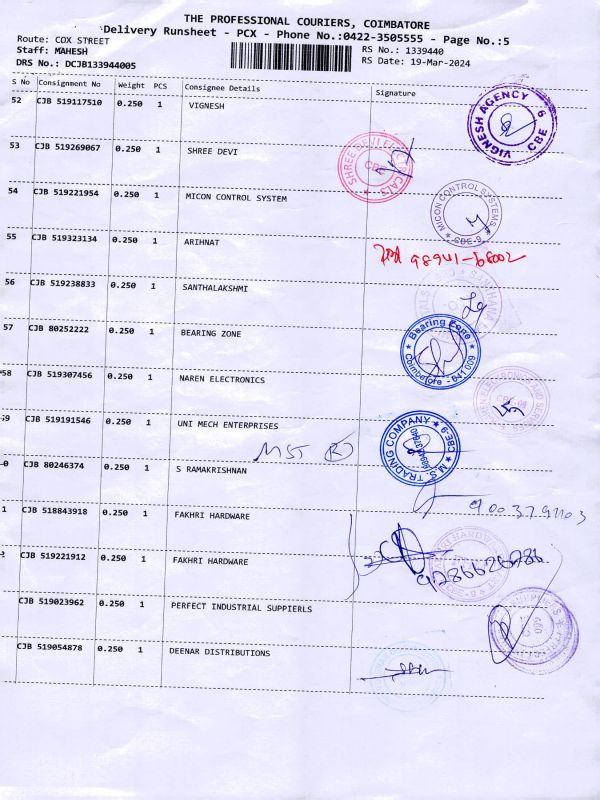 THE PROFESSIONAL COURIERS, COIMBATORE
Delivery Runsheet - PCX - Phone No.:0422-3505555 - Page No.:5
Route: COX STREET
RS No.: 1339440
Staff: MAHESH
RS Date: 19-Mar-2024
DRS No.: DCJB133944005
S No Consignment No Weight PCS Consignee Details Signature
52 CJB 519117510 0.250 1 VIGNESH
VIGNESH AGENCY CBE 9
53 CJB 519269067 0.250 1 SHREE DEVI
54 CJB 519221954 0.250 1 MICON CONTROL SYSTEM
MICON CONTROL SYSTEMS CBE-9
55 CJB 519323134 0.250 1 ARIHNAT
98941-68002
56 CJB 519238833 0.250 1 SANTHALAKSHMI
57 CJB 80252222 0.250 1 BEARING ZONE
Bearing Zone Coimbatore - 641 009
58 CJB 519307456 0.250 1 NAREN ELECTRONICS
59 CJB 519191546 0.250 1 UNI MECH ENTERPRISES
M.S. TRADING COMPANY CBE-9
MST
0 CJB 80246374 0.250 1 S RAMAKRISHNAN
1 CJB 518843918 0.250 1 FAKHRI HARDWARE
2 CJB 519221912 0.250 1 FAKHRI HARDWARE
CJB 519023962 0.250 1 PERFECT INDUSTRIAL SUPPIERLS
CJB 519054878 0.250 1 DEENAR DISTRIBUTIONS